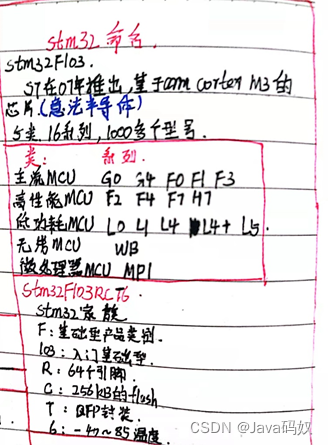 stm32 命名
stm32F103.
ST在07年推出,基于arm corter M3的
芯片.(意法半导体)
5类.16系列,1000多个型号.
类: 系列.
主流MCU G0 G4 F0 F1 F3
高性能MCU F2 F4 F7 H7
低功耗MCU L0 L1 L4 L4+ L5.
无线MCU WB
微处理器MCU MP1
Stm32F103RCT6.
Stm32家族
F:基础型产品类别.
103:入门基础型.
R:64个引脚.
C:256kB的flash
T:QFP封装.
6:-40~85温度.
CSDN @Java码奴